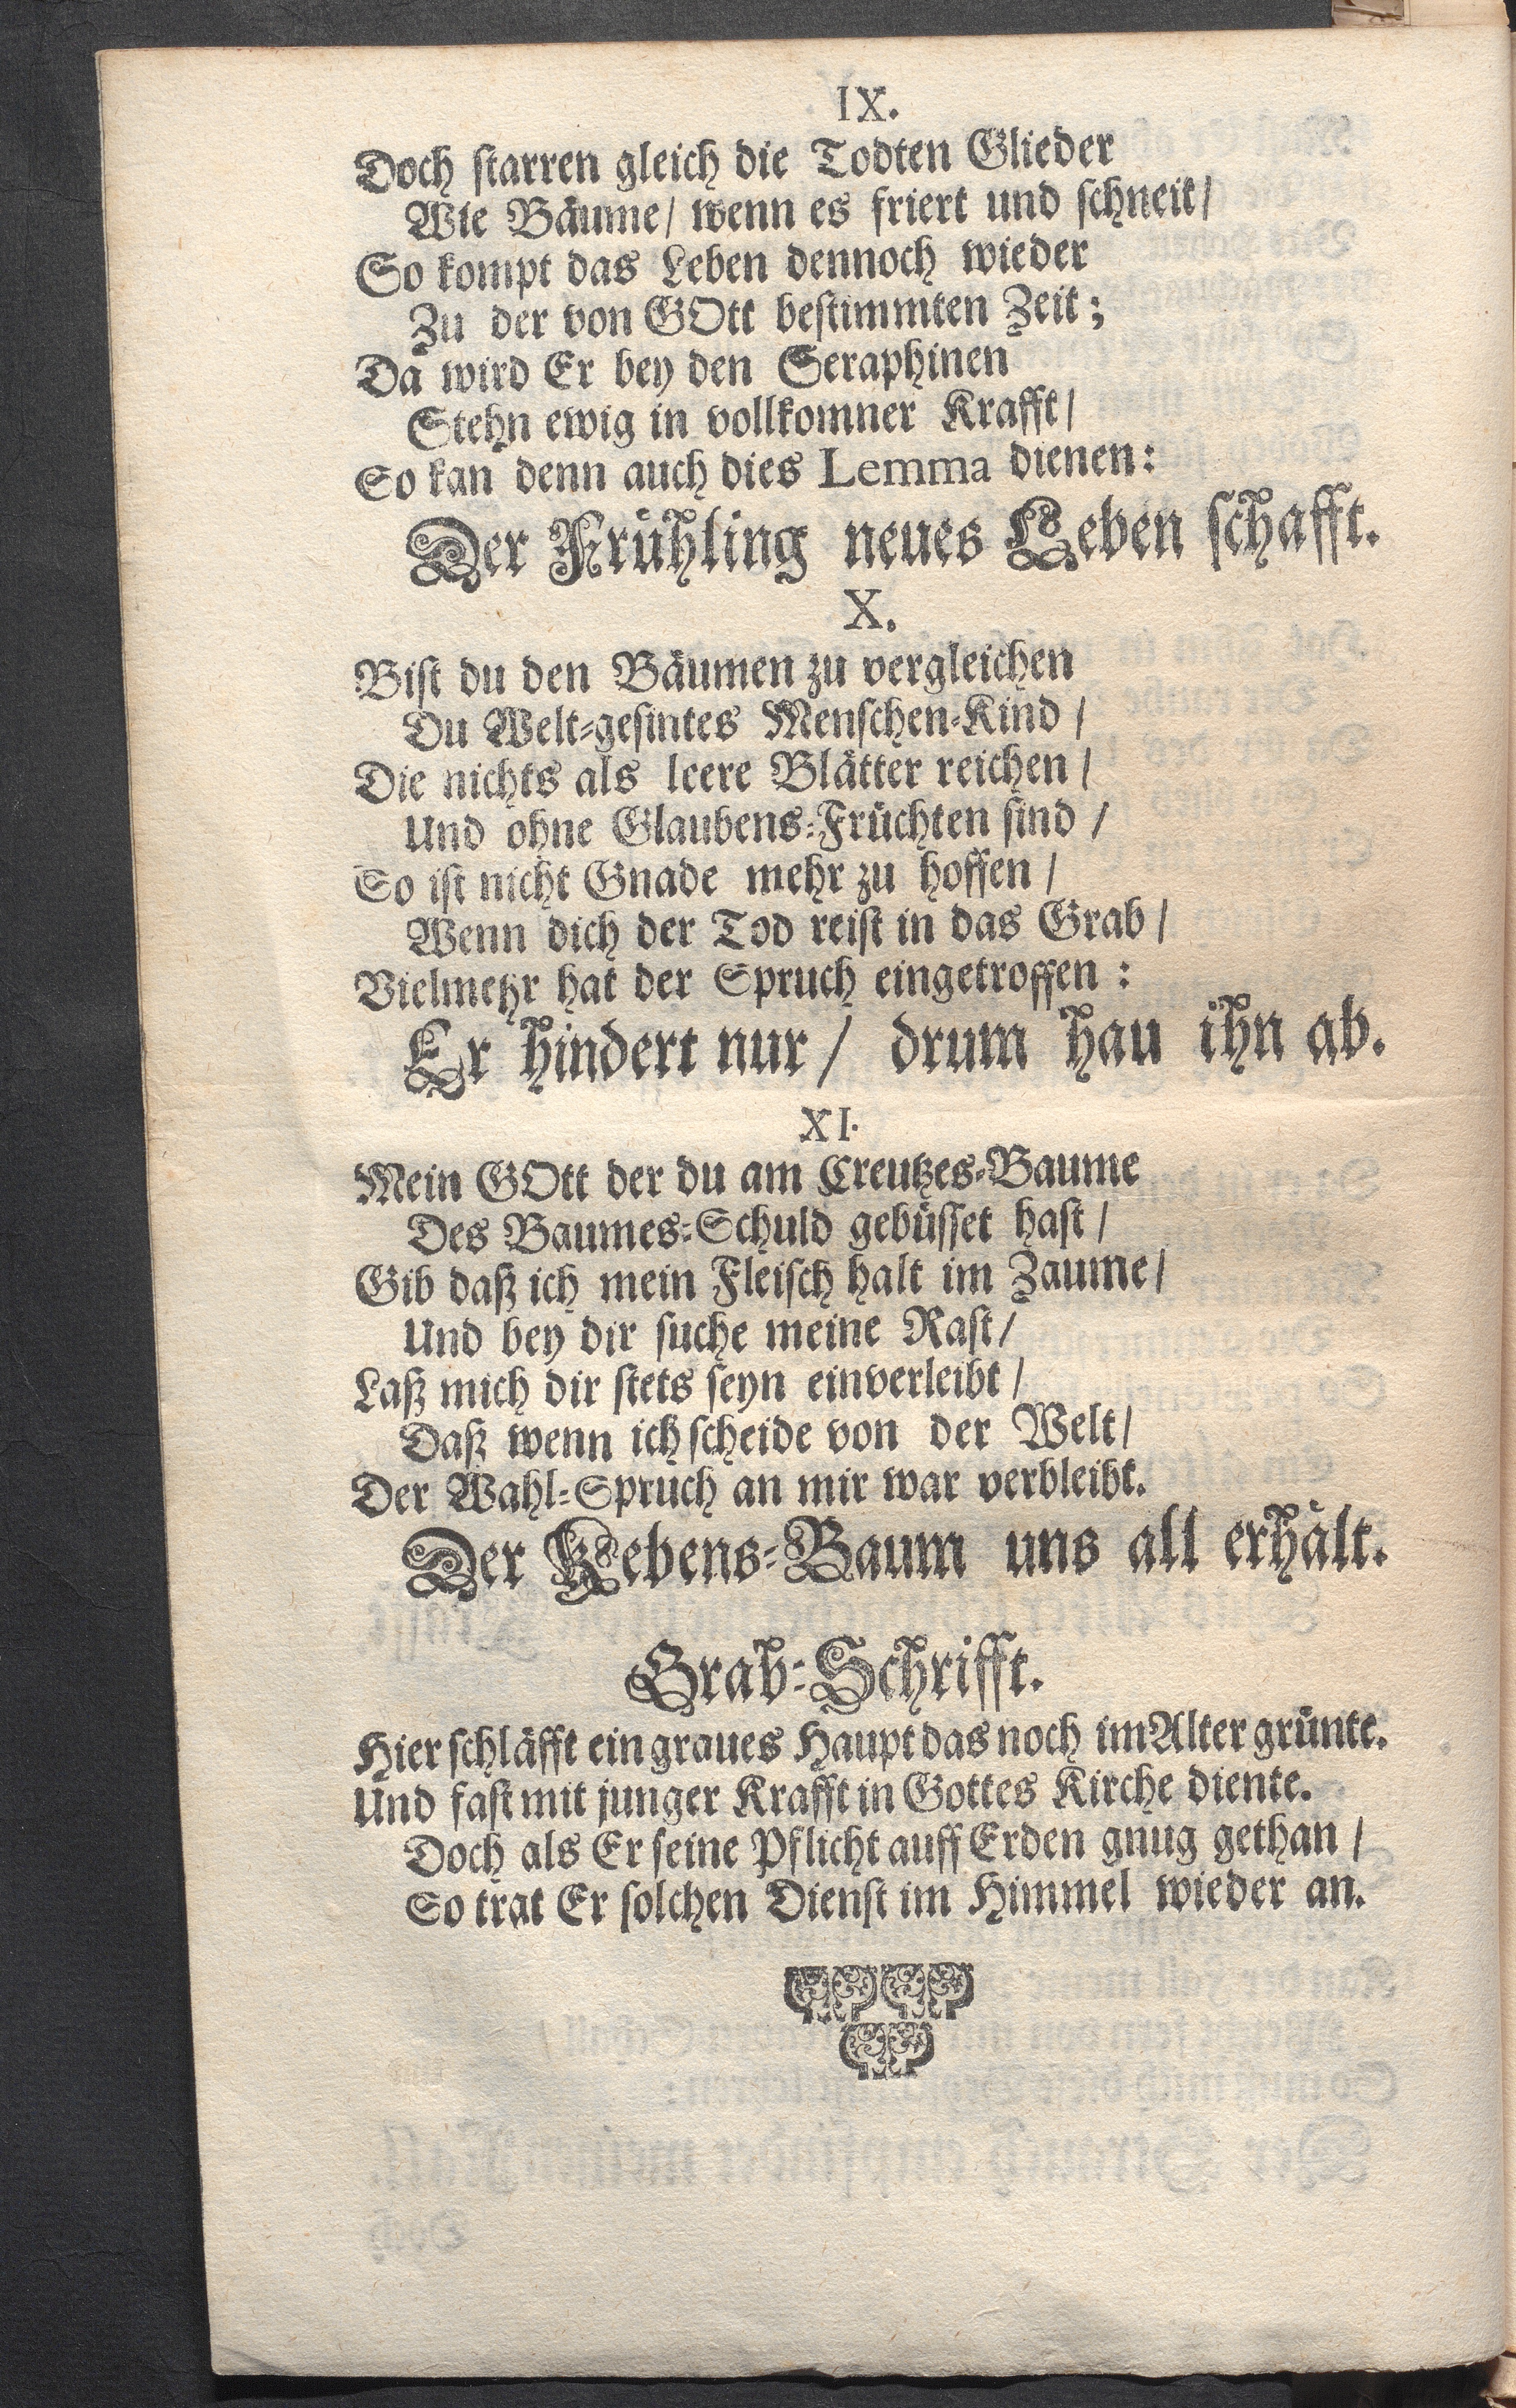 IX.
Doch starren gleich die Todten Glieder
Wie Bäume/ wenn es friert und schneit/
So kompt das Leben dennoch wieder
Zu der von GOtt bestimmten Zeit;
Da wird Er bey den Seraphinen
Stehn ewig in vollkomner Krafft/
So kan denn auch dies Lemma dienen:
Der Frühling neues Leben schafft.
X.
Bist du den Bäumen zu vergleichen
Du Welt-gesintes Menschen-Kind/
Die nichts als leere Blätter reichen/
Und ohne Glaubens-Früchten sind/
So ist nicht Gnade mehr zu hoffen/
Wenn dich der Tod reist in das Grab/
Vielmehr hat der Spruch eingetroffen:
Er hindert nur/ drum hau ihn ab.
XI.
Mein GOtt der du am Creutzes-Baume
Des Baumes-Schuld gebüsset hast/
Gib daß ich mein Fleisch halt im Zaume/
Und bey dir suche meine Rast/
Laß mich dir stets seyn einverleibt/
Daß wenn ich scheide von der Welt/
Der Wahl-Spruch an mir war verbleibt.
Der Lebens-Baum uns all erhält.
Grab-Schrifft.
Hier schläfft ein graues Haupt das noch im Alter grünte.
Und fast mit junger Krafft in Gottes Kirche diente.
Doch als Er seine Pflicht auff Erden gnug gethan/
So trat Er solchen Dienst im Himmel wieder an.